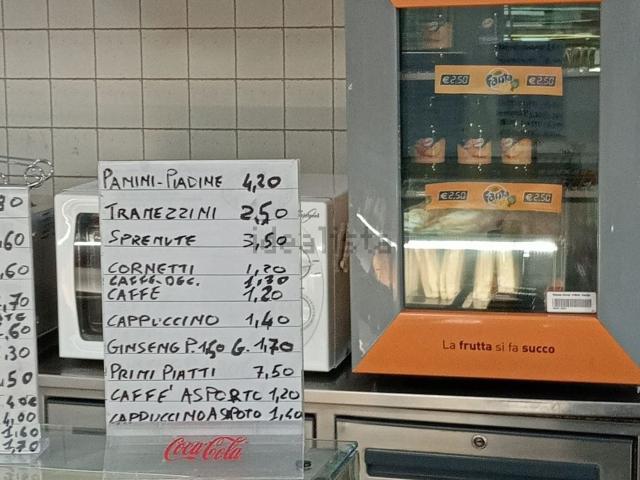 PANINI-PIADINE 4,20
TRAMEZZINI 2,50
SPREMUTE 3,50
CORNETTI 1,20
CAFFE-DEC. 1,30
CAFFE 1,20
CAPPUCCINO 1,40
GINSENG P.1,60 G. 1,70
PRIMI PIATTI 7,50
CAFFE' ASPORTO 1,20
CAPPUCCINO ASPOTO 1,40
Coca-Cola
,60
,60
,70
,60
,30
,50
4,00
1,60
1,70
€2.50 Fanta €2.50
€2.50 Fanta €2.50
La frutta si fa succo
idealista